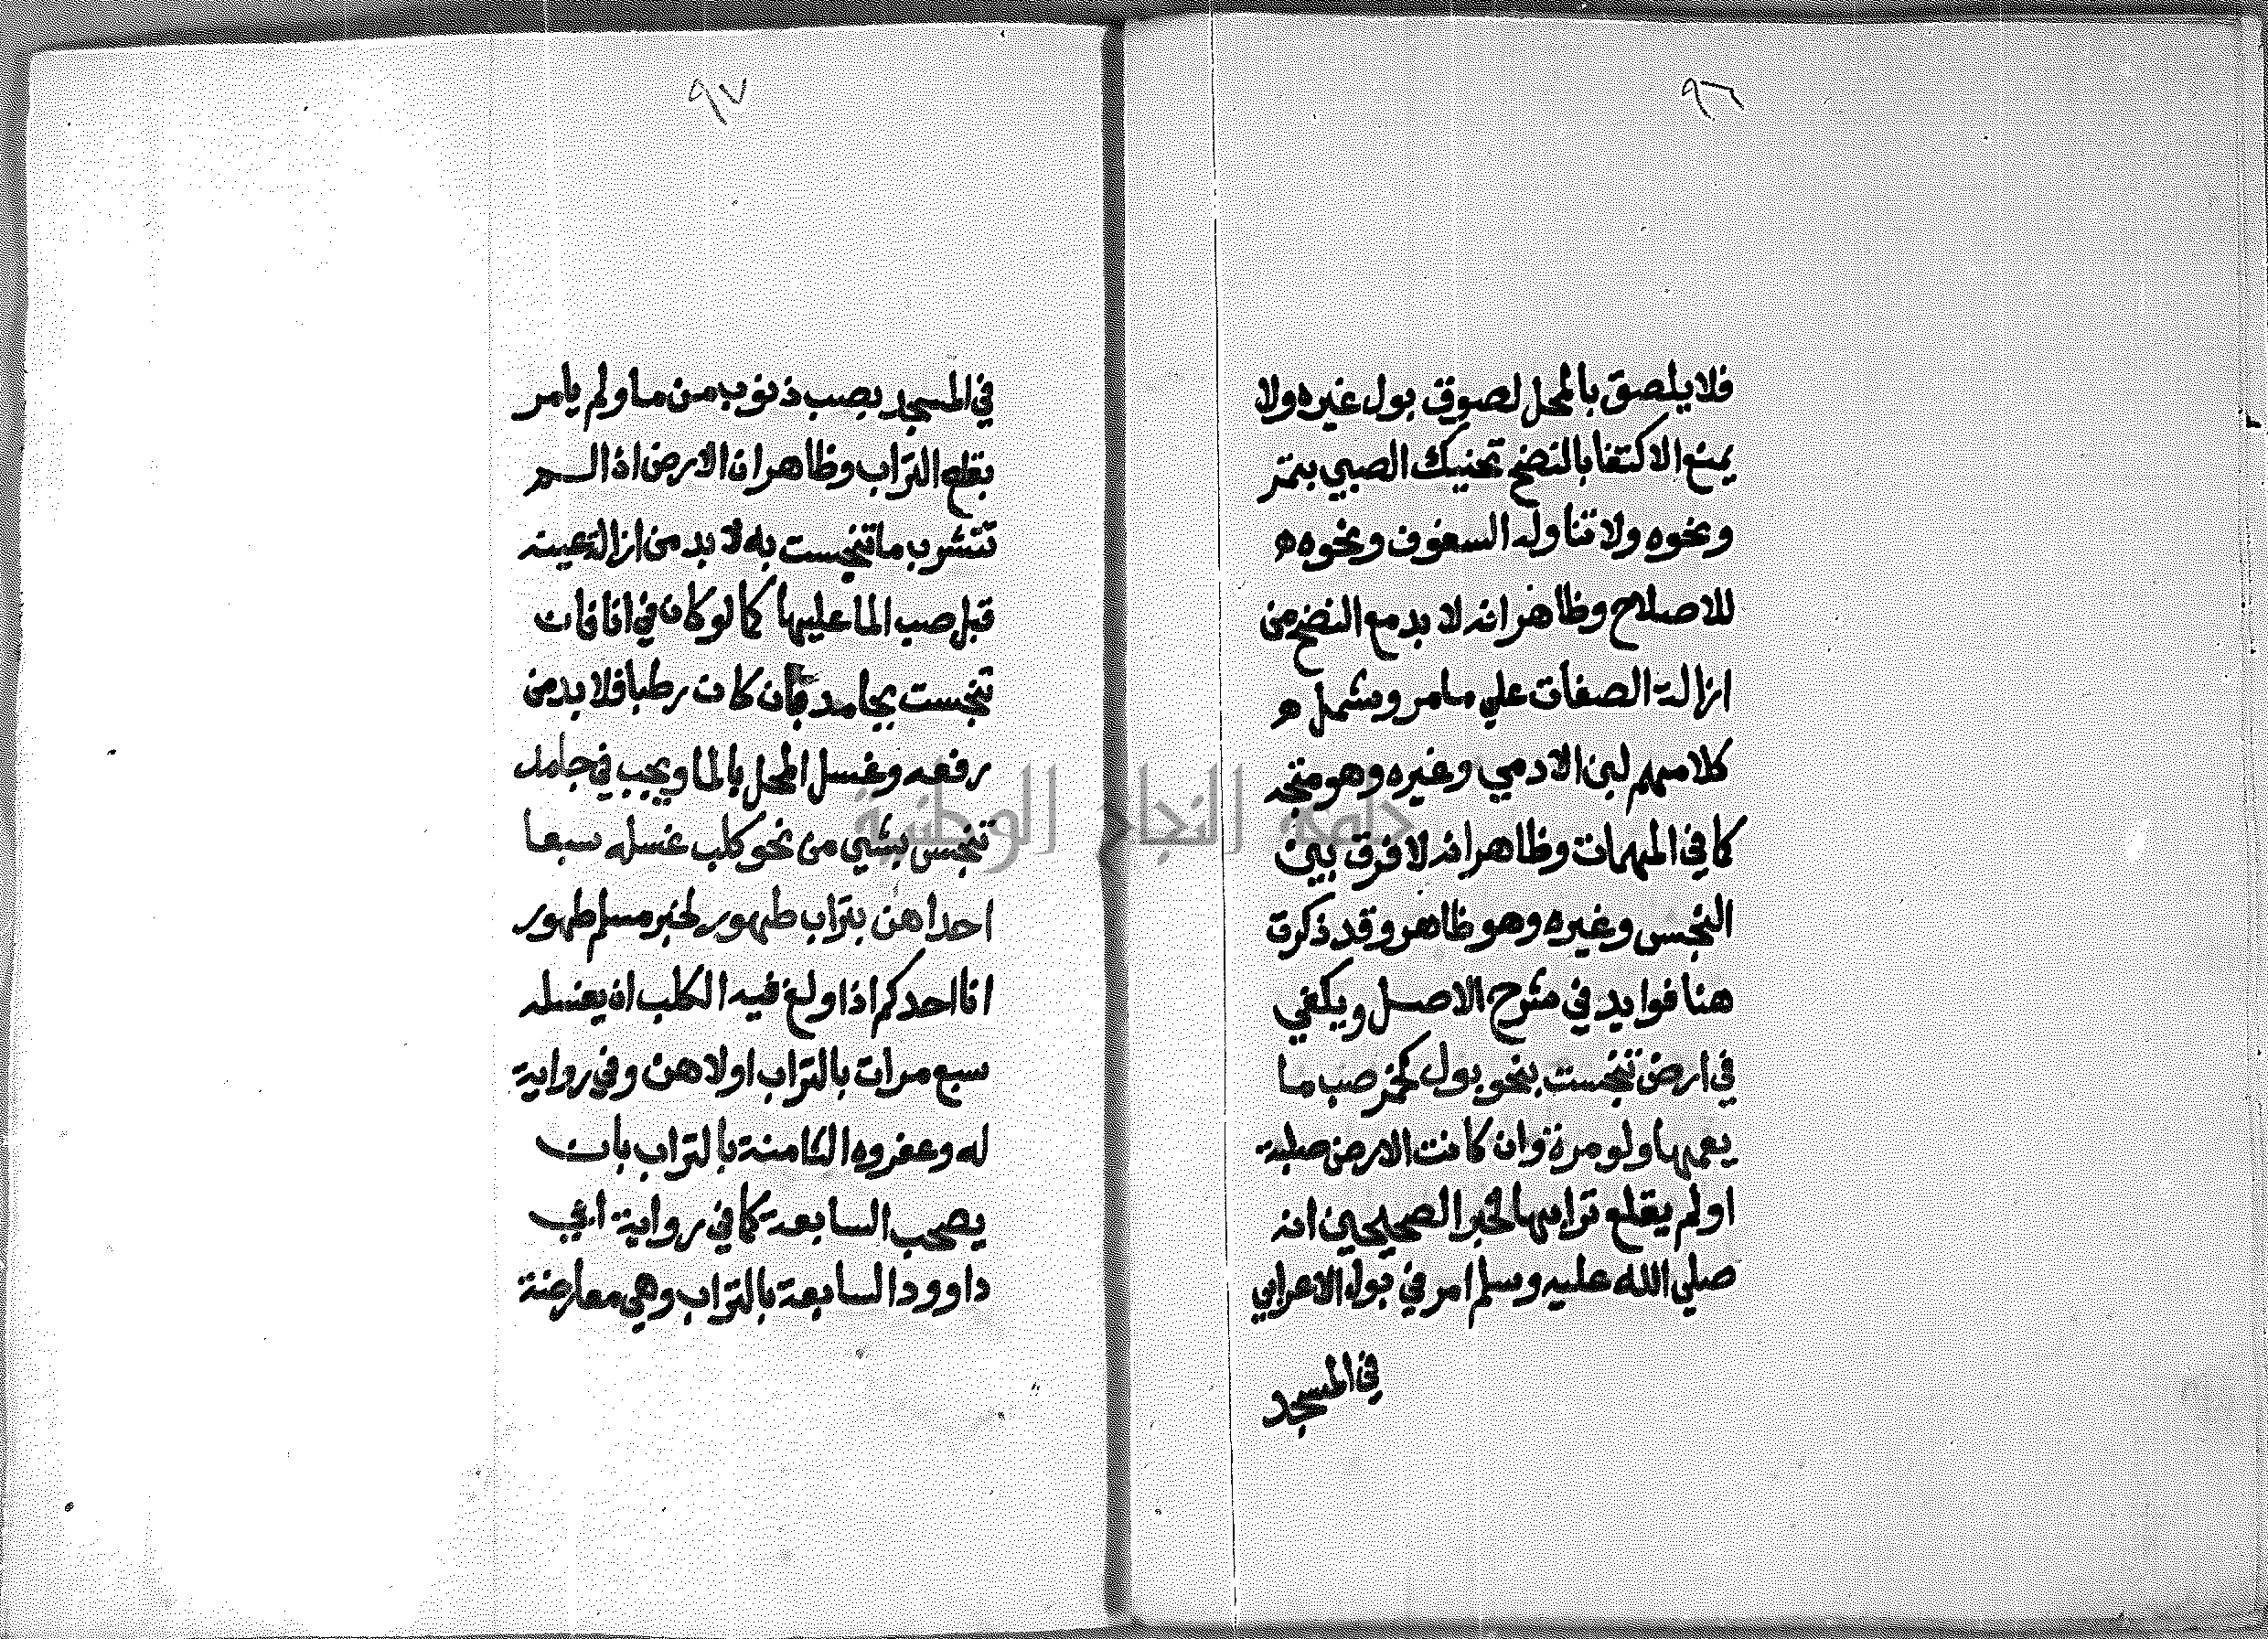 ٩٦
فلا يلصق بالمحل لصوق بول غيره ولا
يمنع الاكتفا بالنضح تحنيك الصبي بتمر
ونحوه ولا تناوله السفوف ونحوه ه
للاصلاح وظاهر انه لا بد مع النضح من
ازالة الصفات علي ما مر ويشمل ه
كلامهم لبن الادمي وغيره وهو متجه
كما في المهمات وظاهر انه لا فرق بين
النجس وغيره وهو ظاهر وقد ذكرت
هنا فوايد في شرح الاصل ويكفي
في ارض تنجست بنحو بول كخمر صب ما
يعمها ولو مرة وان كانت الارض صلبة
او لم يقلع ترابها لخبر الصحيحين انه
صلي الله عليه وسلم امر في بول الاعرابي
في المسجد
٩٧
في المسجد بصب ذنوب من ما ولم يامر
بقلع التراب وظاهر ان الارض اذا لم
تتشرب ما تنجست به لا بد من ازالة عينه
قبل صب الما عليها كما لو كان في انا فان
تنجست بجامد فان كان رطبا فلا بد من
رفعه وغسل المحل بالما ويجب في جامد
تنجس بشي من نحو كلب غسله سبعا
احداهن بتراب طهور لخبر مسلم طهور
انا احدكم اذا ولغ فيه الكلب ان يغسله
سبع مرات بالتراب اولاهن وفي رواية
له وعفروه الثامنة بالتراب بان
يصحب السابعة كما في رواية ابي
داوود السابعة بالتراب وهي معارضة
جامعة النجاح الوطنية